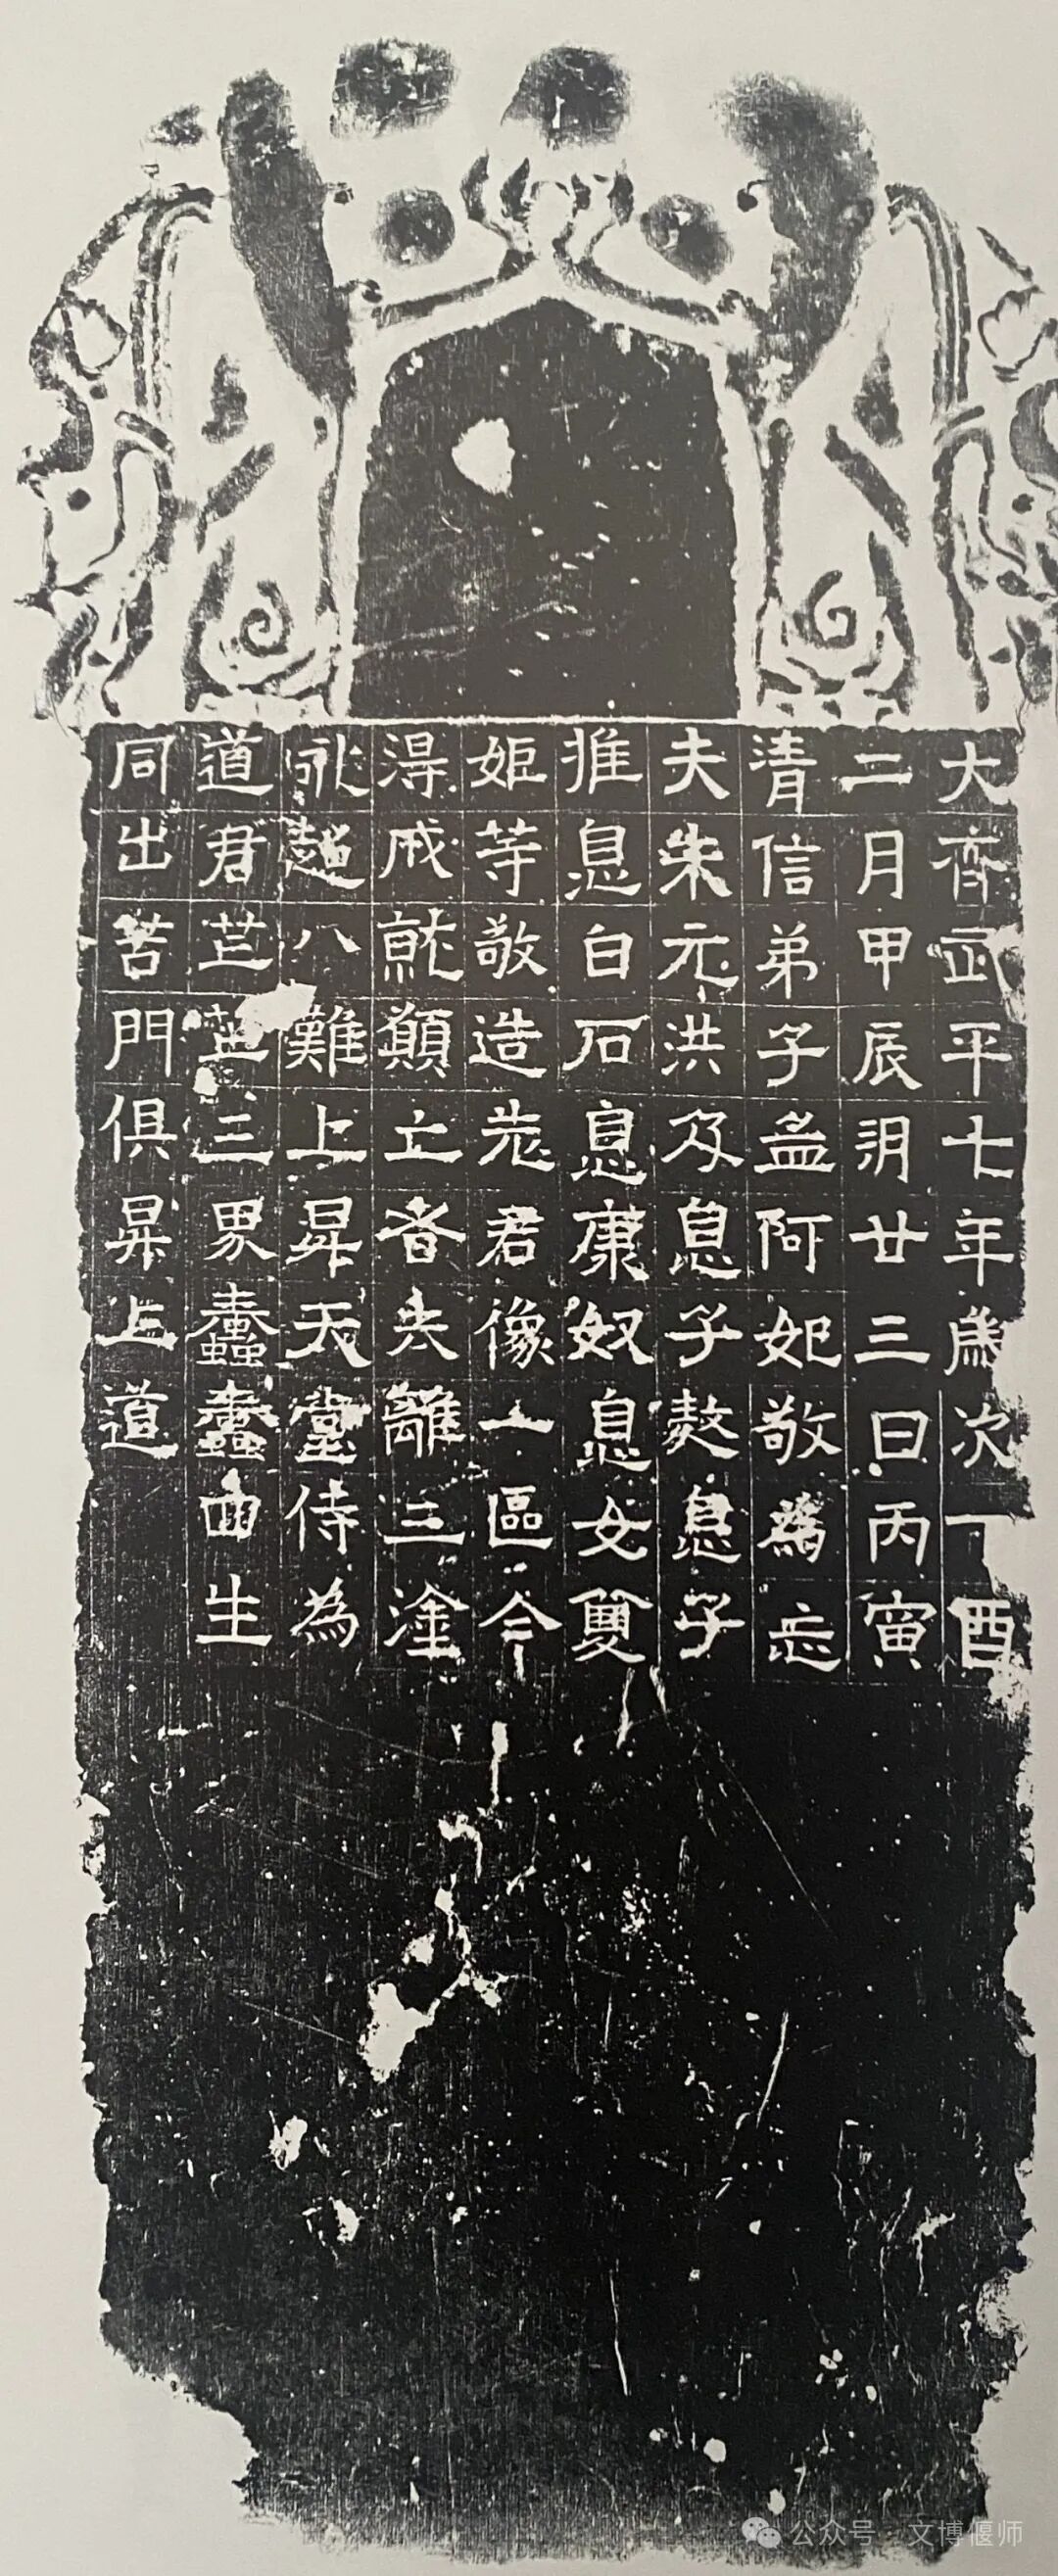 大齊武平七年歲次丁酉
二月甲辰朔廿三日丙寅
清信弟子孟阿妃敬為忘
夫朱元洪及息子敖息子
推息白石息康奴息女雙
姬等敬造老君像一區今
淂成就願亡者去離三塗
永超八難上昇天堂侍為
道君芒芒三界蠢蠢四生
同出苦門俱昇上道
公众号 · 文博偃师